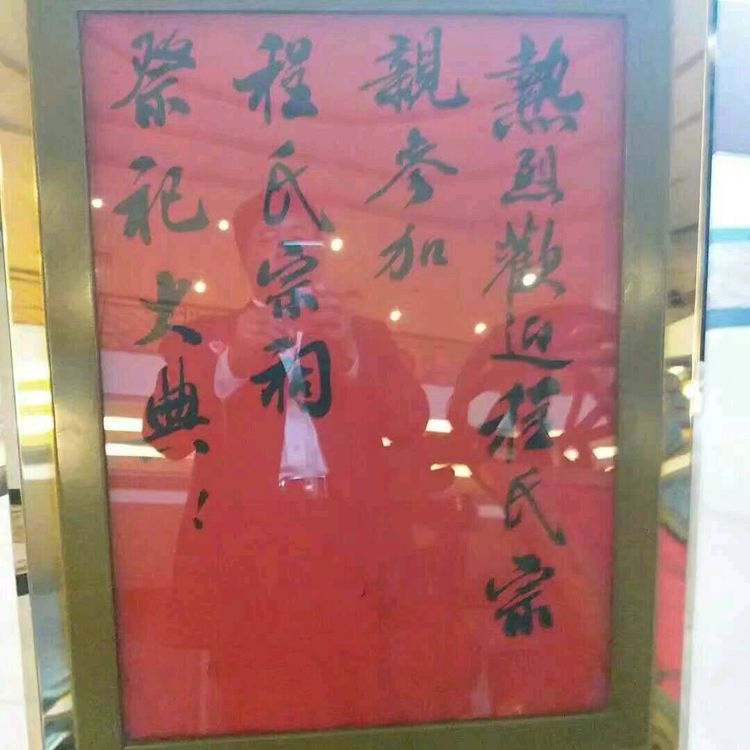 熱烈歡迎程氏宗
親參加
程氏宗祠
祭祀大典！